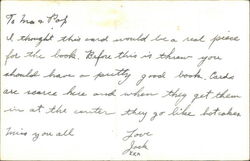 To Ma & Pop
I thought this card would be a real piece
for the book. Before this is threw you
should have a pretty good book. Cards
are scarce here and when they get them
in at the center they go like hot cakes.
Miss you all
Love
Jack
xxx